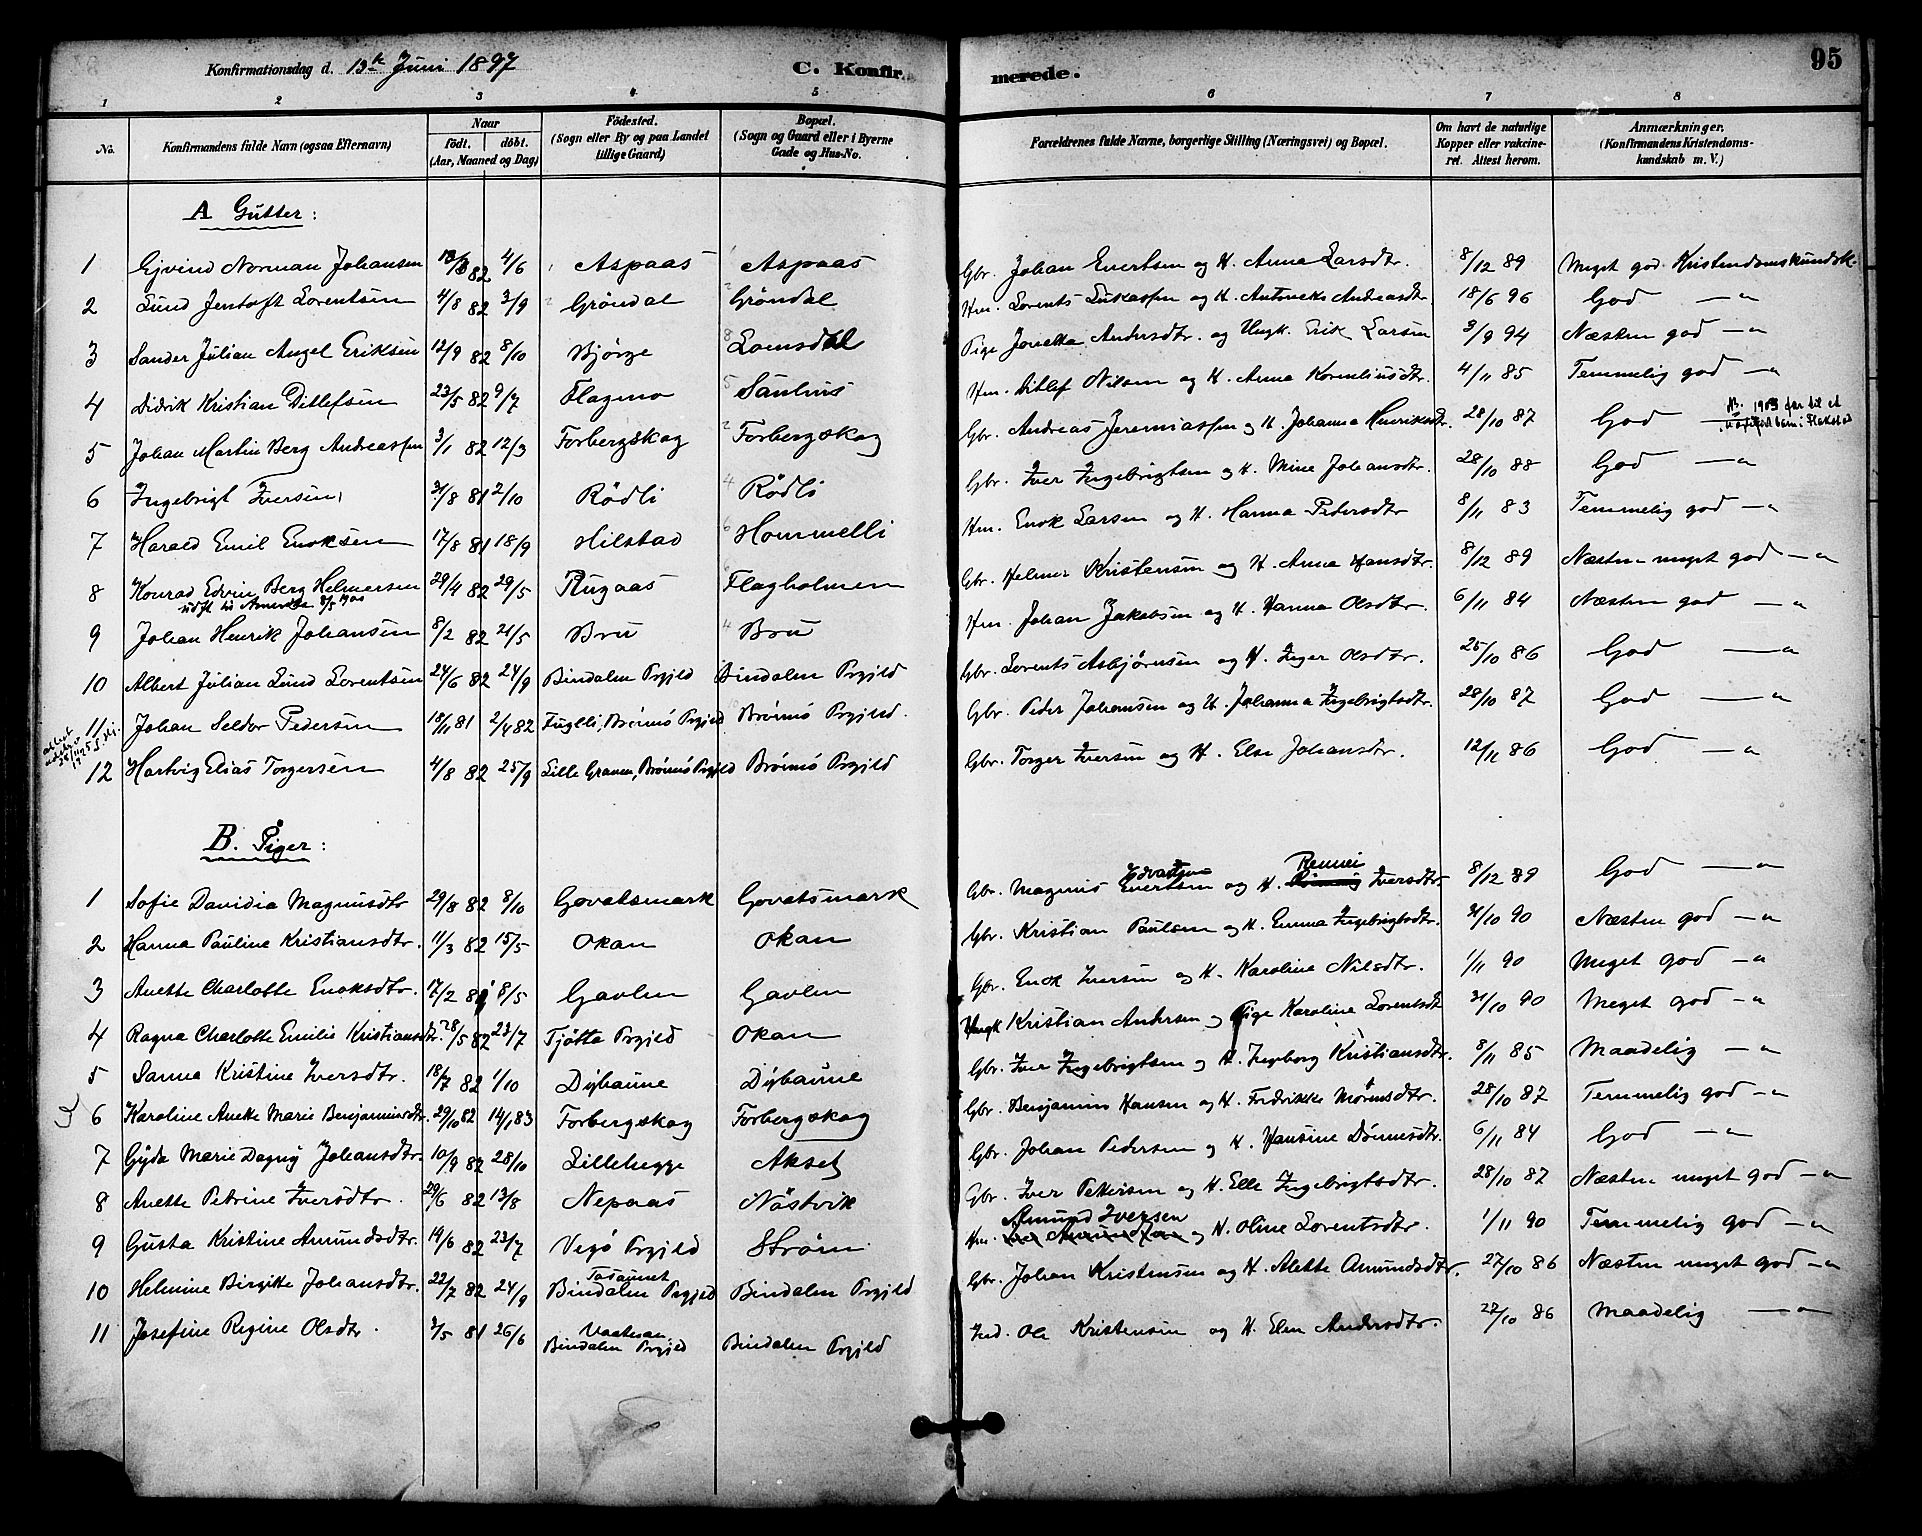 Konfirmationsdag d. 13th Juni 1897 C. Konfirmerede. 95
1 2 3 4 5 6 7 8
No. Konfirmandens fulde Navn (ogsaa Efternavn) Naar födt. döbt. (Aar, Maaned og Dag) Födested. (Sogn eller By og paa Landet tillige Gaard) Bopæl. (Sogn og Gaard eller i Byerne Gade og Hus-No. Forældrenes fulde Navne, borgerlige Stilling (Næringsvei) og Bopæl. Om havt de naturlige Kopper eller vaccineret. Attest herom. Anmærkninger. (Konfirmandens Kristendomskundskab m. V.)
A Gutter:
1 Ejvind Norman Johansen 82 4/6 Aspaas Aspaas Gbr. Johan Evertsen og H. Anna Larsdtr. 8/12 89 Meget god Kristendomskundsk.
2 Lund Jentoft Lorentsen 4/8 82 3/9 Gröndal Gröndal Hm. Lorents Lukassen og H. Antonette Andreasdtr. 18/6 96 God —"
3 Sander Julian Angel Eriksen 12/9 82 8/10 Bjørge Lomsdal Pige Jonetta Andersdtr. og Ungk. Erik Larsen 3/9 94 Næsten god —"
4 Didrik Kristian Ditlefsen 23/5 82 9/7 Flagmo Sauhus Hm. Ditlef Nilsen og H. Anna Korneliusdtr. 4/11 85 Temmelig god —"
5 Johan Martin Berg Andreassen 3/1 82 12/3 Forbergskog Forbergskog Gbr. Andreas Jeremiassen og H. Johanna Henriksdtr. 28/10 87 God —"
6 Ingebrigt Iversen 31/8 81 2/10 Rödli Rödli Gbr. Iver Ingebrigtsen og H. Mine Johansdtr. 28/10 88 God —"
7 Harald Emil Enoksen 17/8 81 18/9 Hilstad Hommelli Hm. Enok Larsen og H. Hanna Pedersdtr 8/11 83 Temmelig god —"
8 Konrad Edvin Berg Helmersen 29/4 82 29/5 Rugaas Flagholmen Gbr. Helmer Kristensen og H. Anna Hansdtr. 8/12 89 Næsten meget god —"
udft til Amerika 8/5 1900
9 Johan Henrik Johansen 8/2 82 21/5 Bru Bru Hm. Johan Jakobsen og H. Hanna Olsdtr. 6/11 84 Næsten god —"
10 Albert Julian Lund Lorentsen 24/6 82 24/9 Bindalen Prgjld Bindalen Prgjld Gbr. Lorents Asbjørnsen og H. Inger Olsdtr. 25/10 86 God —"
11 Johan Seldor Pedersen 18/11 81 2/4 82 Fuglli, Brönnö Prgjeld Brönnö Prgjeld. Gbr. Peder Johansen og H. Johanna Ingebrigtsdtr. 28/10 87 God —"
12 Hartvig Elias Torgersen 4/8 82 25/9 Lille Granen, Brönnö Prgjeld Brönnö Prgjld Gbr. Torger Iversen og H. Else Johansdtr. 12/11 86 God —"
B. Piger:
1 Sofie Davidia Magnusdtr 29/8 82 8/10 Govatsmark Govatsmark Gbr. Magnus Evertsen og H. Rennei Iversdtr. 8/12 89 God —"
2 Hanna Pauline Kristiansdtr. 11/3 82 15/5 Okan Okan Gbr. Kristian Paulsen og H. Emma Ingebrigtsdtr. 31/10 90 Næsten god —"
3 Anette Charlotte Enoksdtr. 17/2 81 8/5 Gavlen Gavlen Gbr. Enok Iversen og H. Karoline Nilsdtr. 1/11 90 Meget god —"
4 Ragna Charlotte Emilie Kristiansdtr. 28/5 82 23/7 Tjötta Prgjeld Okan Ungk Kristian Andersen og Pige Karoline Lorentsdtr 31/10 90 Meget god —"
5 Sanna Kristine Iversdtr. 18/7 82 1/10 Dybaune Dybaune Gbr. Iver Ingebrigtsen og H. Ingborg Kristiansdtr. 8/11 85 Maadelig —"
6 Karoline Anette Marie Benjaminsdtr. 29/10 82 14/1 83 Forbergskog Forbergskog Gbr. Benjamin Hansen og H. Fredrikke Mörensdtr. 28/10 87 Temmelig god —"
7 Gyda Marie Dagny Johansdtr. 10/9 82 28/10 Lillehegge Akset Gbr. Johan Pedersen og H. Hansine Dönnesdtr. 6/11 84 God —"
8 Anette Petrine Iversdtr. 29/6 82 13/8 Nepaas Nöstvik Gbr. Iver Pettersen og H. Elle Ingebrigtsdtr. 28/10 87 Næsten meget god —"
9 Gusta Kristine Amundsdtr. 14/6 82 23/7 Vegö Prgjeld Ström Hm. Amund Iversen og H. Oline Lorentsdtr. 1/11 90 Temmelig god —"
10 Helmine Birgitte Johansdtr. 22/7 82 24/9 Tosaunet Bindalen Prgjeld Bindalen Prgjeld Gbr. Johan Kristensen og H. Alette Amundsdtr. 27/10 86 Næsten meget god —"
11 Josefine Regine Olsdtr. 7/5 81 26/6 Bindalen Prgjeld Bindalen Prgjeld Ind. Ole Kristensen og H. Elen Andersdtr. 27/10 86 Maadelig —"